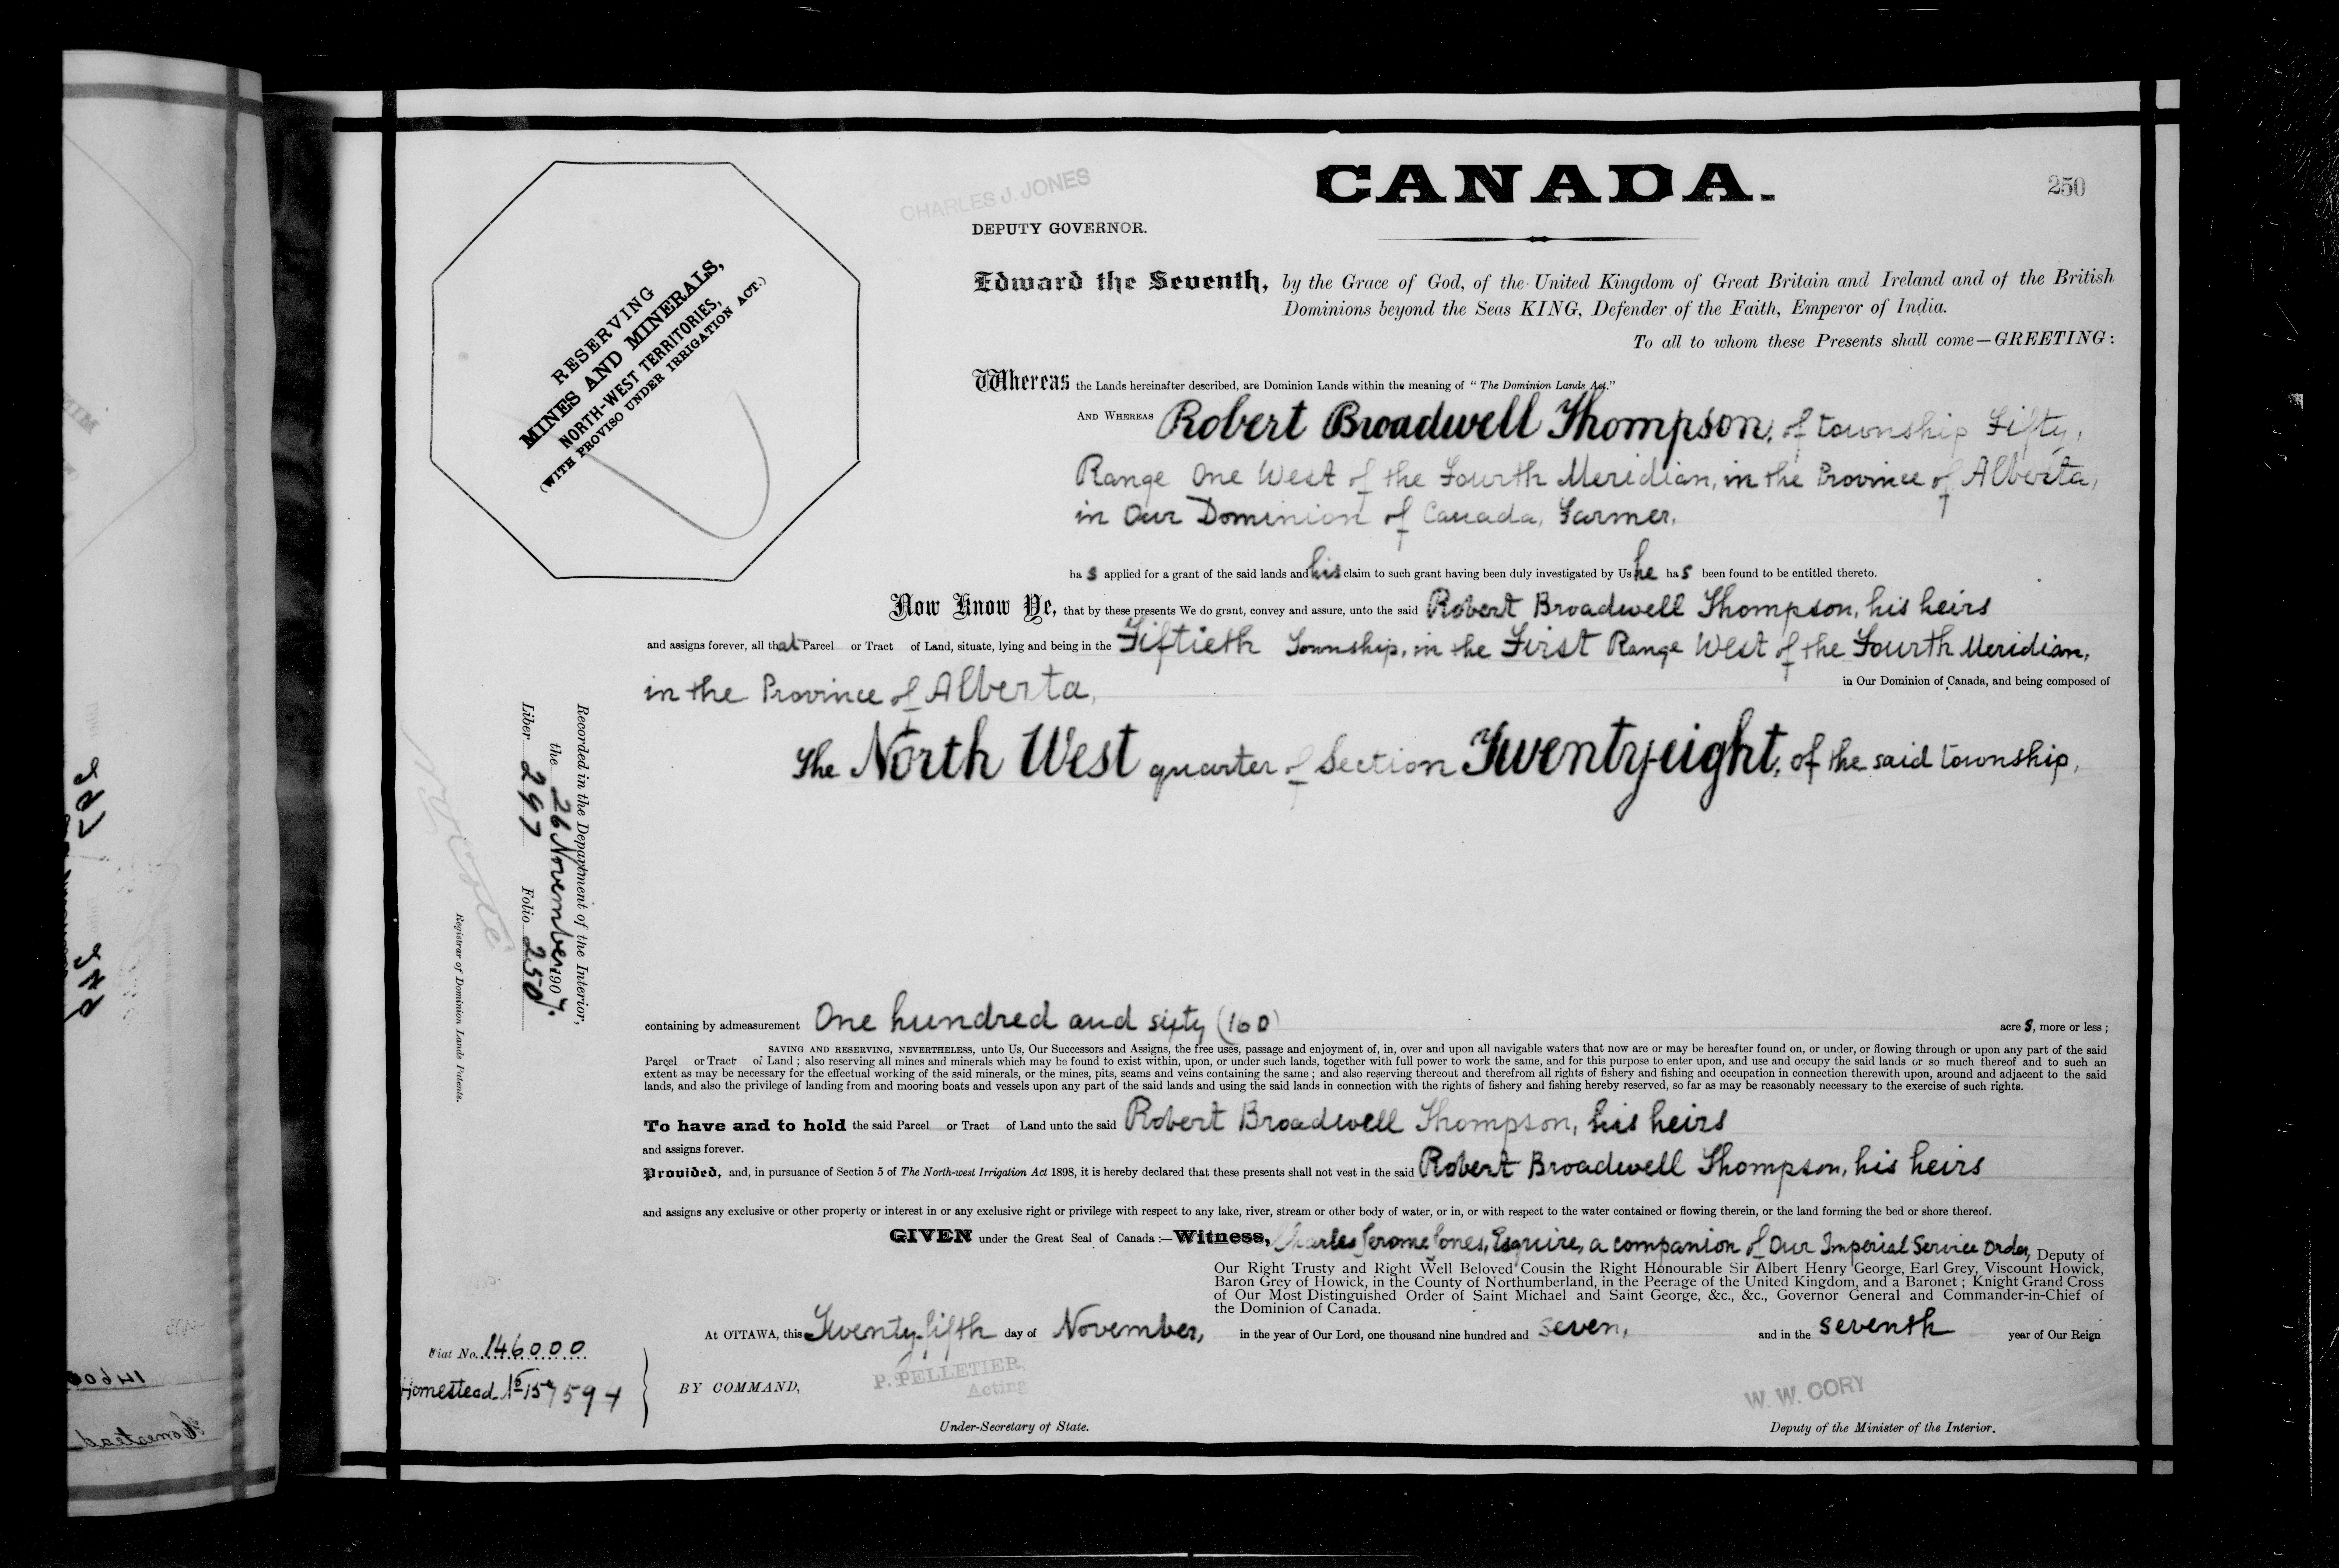 CANADA.
250
CHARLES J. JONES
DEPUTY GOVERNOR.
RESERVING
MINES AND MINERALS,
NORTH-WEST TERRITORIES,
(WITH PROVISO UNDER IRRIGATION ACT.)
Edward the Seventh, by the Grace of God, of the United Kingdom of Great Britain and Ireland and of the British
Dominions beyond the Seas KING, Defender of the Faith, Emperor of India.
To all to whom these Presents shall come—GREETING:
Whereas the Lands hereinafter described, are Dominion Lands within the meaning of "The Dominion Lands Act."
AND WHEREAS Robert Broadwell Thompson, of township Fifty,
Range One West of the Fourth Meridian, in the Province of Alberta,
in Our Dominion of Canada, Farmer,
has applied for a grant of the said lands and his claim to such grant having been duly investigated by Us he has been found to be entitled thereto.
Now Know Ye, that by these presents We do grant, convey and assure, unto the said Robert Broadwell Thompson, his heirs
and assigns forever, all that Parcel or Tract of Land, situate, lying and being in the Fiftieth Township, in the First Range West of the Fourth Meridian,
in the Province of Alberta, in Our Dominion of Canada, and being composed of
The North West quarter of Section Twenty-eight, of the said township,
Recorded in the Department of the Interior,
the 26 November 1907.
Liber 297 Folio 250
Registrar of Dominion Lands Patents.
containing by admeasurement One hundred and sixty (160) acres, more or less;
SAVING AND RESERVING, NEVERTHELESS, unto Us, Our Successors and Assigns, the free uses, passage and enjoyment of, in, over and upon all navigable waters that now are or may be hereafter found on, or under, or flowing through or upon any part of the said
Parcel or Tract of Land; also reserving all mines and minerals which may be found to exist within, upon, or under such lands, together with full power to work the same, and for this purpose to enter upon, and use and occupy the said lands or so much thereof and to such an
extent as may be necessary for the effectual working of the said minerals, or the mines, pits, seams and veins containing the same; and also reserving thereout and therefrom all rights of fishery and fishing and occupation in connection therewith upon, around and adjacent to the said
lands, and also the privilege of landing from and mooring boats and vessels upon any part of the said lands and using the said lands in connection with the rights of fishery and fishing hereby reserved, so far as may be reasonably necessary to the exercise of such rights.
To have and to hold the said Parcel or Tract of Land unto the said Robert Broadwell Thompson, his heirs
and assigns forever.
Provided, and, in pursuance of Section 5 of The North-west Irrigation Act 1898, it is hereby declared that these presents shall not vest in the said Robert Broadwell Thompson, his heirs
and assigns any exclusive or other property or interest in or any exclusive right or privilege with respect to any lake, river, stream or other body of water, or in, or with respect to the water contained or flowing therein, or the land forming the bed or shore thereof.
GIVEN under the Great Seal of Canada:—Witness, Charles Jerome Jones, Esquire, a companion of Our Imperial Service Order, Deputy of
Our Right Trusty and Right Well Beloved Cousin the Right Honourable Sir Albert Henry George, Earl Grey, Viscount Howick,
Baron Grey of Howick, in the County of Northumberland, in the Peerage of the United Kingdom, and a Baronet; Knight Grand Cross
of Our Most Distinguished Order of Saint Michael and Saint George, &c., &c., Governor General and Commander-in-Chief of
the Dominion of Canada.
At OTTAWA, this Twenty-fifth day of November, in the year of Our Lord, one thousand nine hundred and seven, and in the seventh year of Our Reign
Fiat No. 146000
Homestead No 157594
BY COMMAND,
P. PELLETIER,
Acting
Under-Secretary of State.
W. W. CORY
Deputy of the Minister of the Interior.